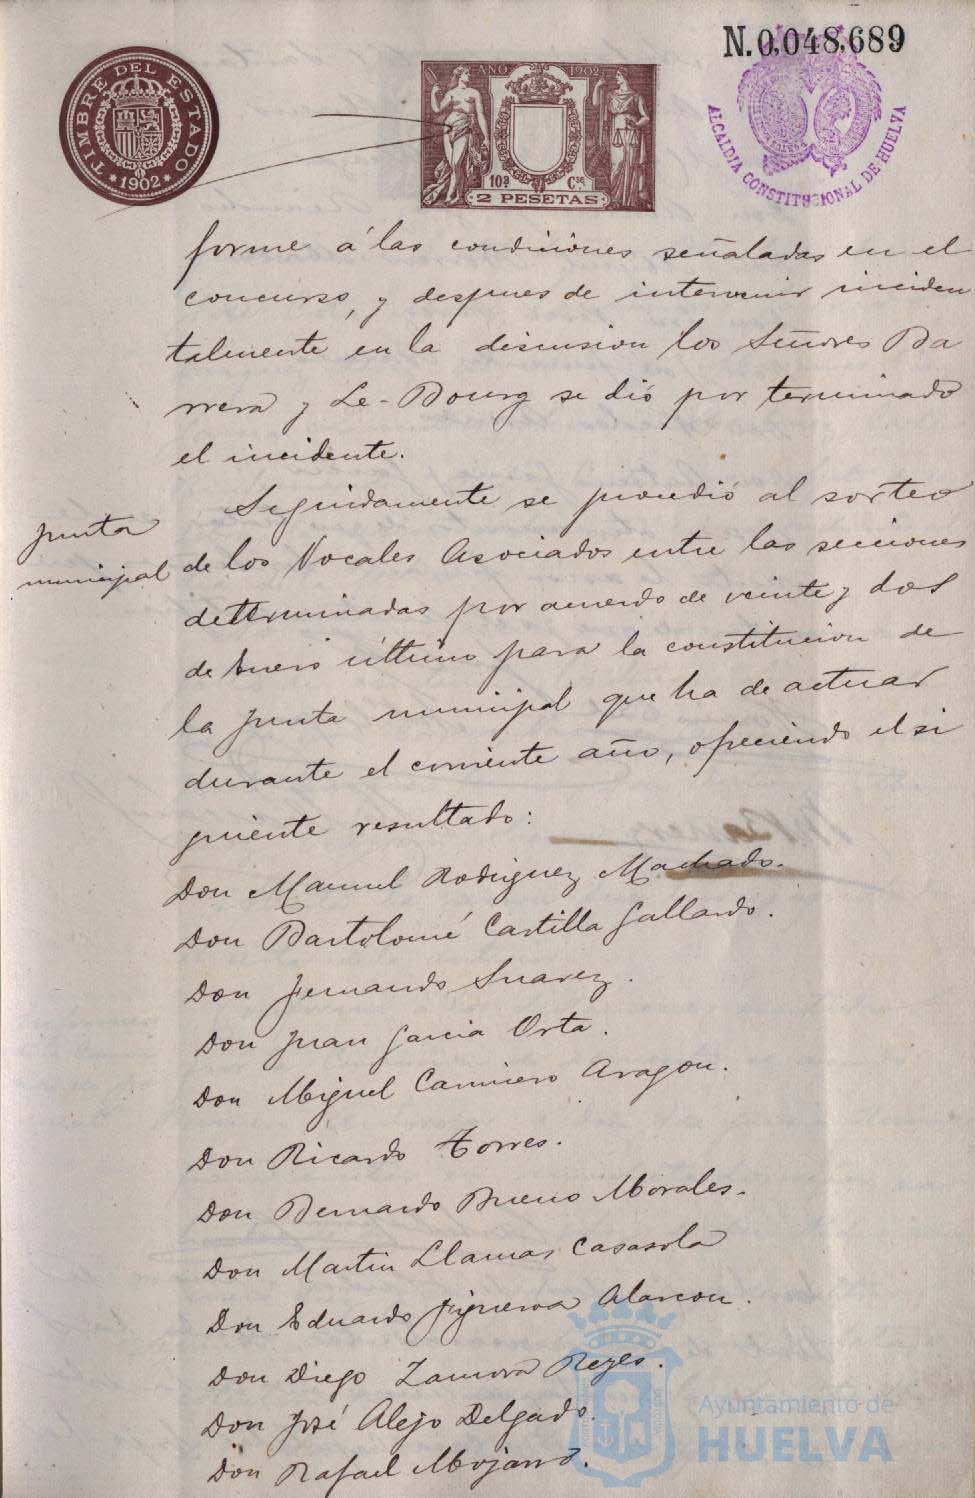 N.0,048,689
TIMBRE DEL ESTADO
*1902*
AÑO 1902
10ª Cse
2 PESETAS
ALCALDIA CONSTITUCIONAL DE HUELVA
forme á las condiciónes señaladas en el
concurso, y despues de intervenir inciden
talmente en la discusion los Señores Ba
rrera y Le-Bourg se dió por terminado
el incidente.
Junta
municipal
Seguidamente se procedió al sorteo
de los Vocales Asociados entre las secciones
determinadas por acuerdo de veinte y dos
de Enero último para la constitucion de
la Junta municipal que ha de actuar
durante el corriente año, ofreciendo el si
guiente resultado:
Don Manuel Rodriguez Machado.
Don Bartolomé Castilla Gallardo.
Don Fernando Suarez.
Don Juan Garcia Orta.
Don Miguel Carniero Aragon.
Don Ricardo Torres.
Don Bernardo Bueno Morales.
Don Martin Llamas Casasola
Don Eduardo Figueroa Alarcon.
Don Diego Zamora Reyes.
Don José Alejo Delgado.
Don Rafael Mojarro.
Ayuntamiento de
HUELVA